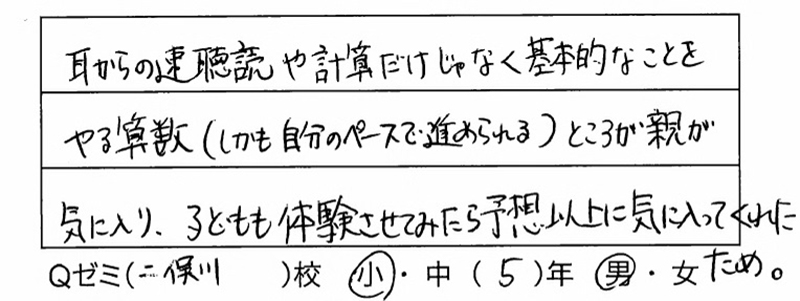 耳からの速聴読や計算だけじゃなく基本的なことを
やる算数(しかも自分のペースで進められる)ところが親が
気に入り、子どもも体験させてみたら予想以上に気に入ってくれた
ため。
Qゼミ(二俣川)校 小・中(5)年 男・女